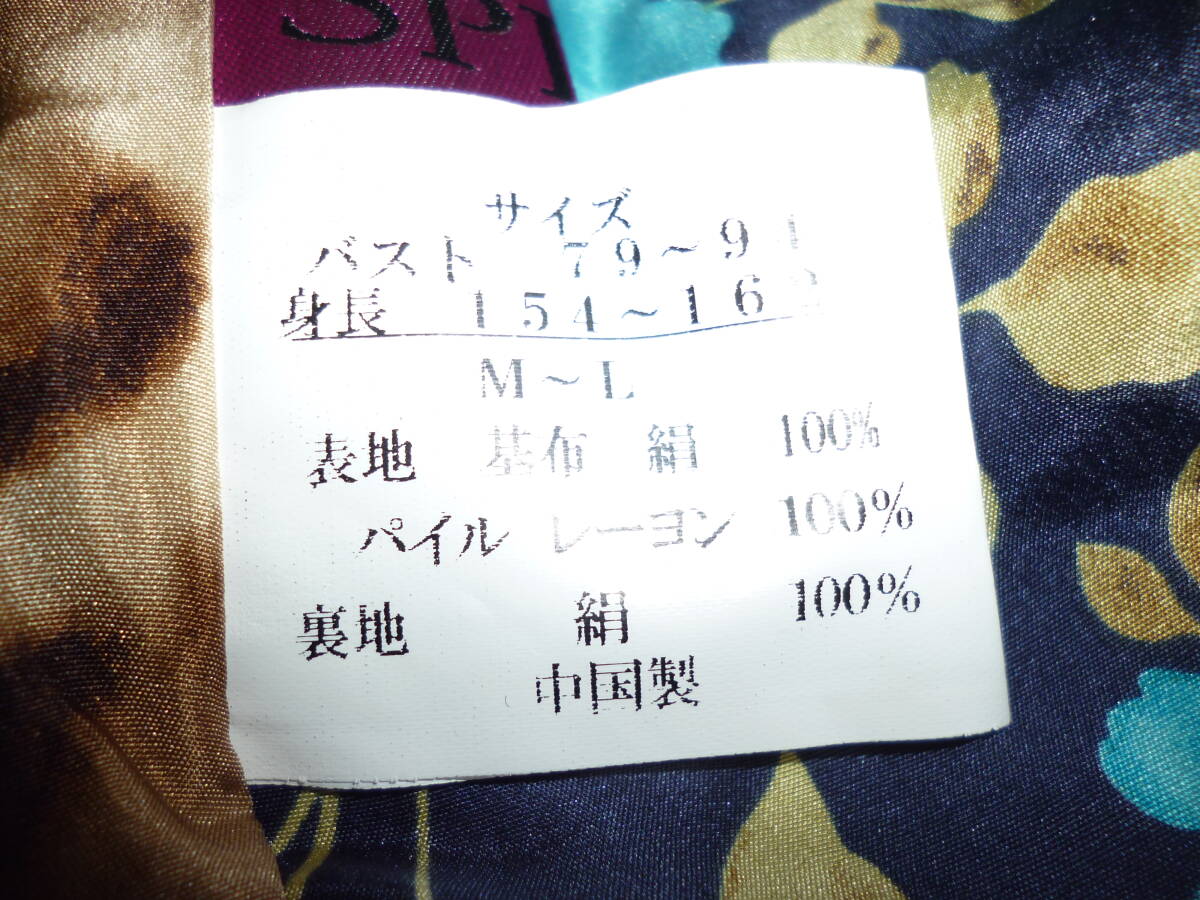 サイズ
バスト 79~91
身長 154~162
M~L
表地 基布 絹 100%
パイル レーヨン 100%
裏地 絹 100%
中国製